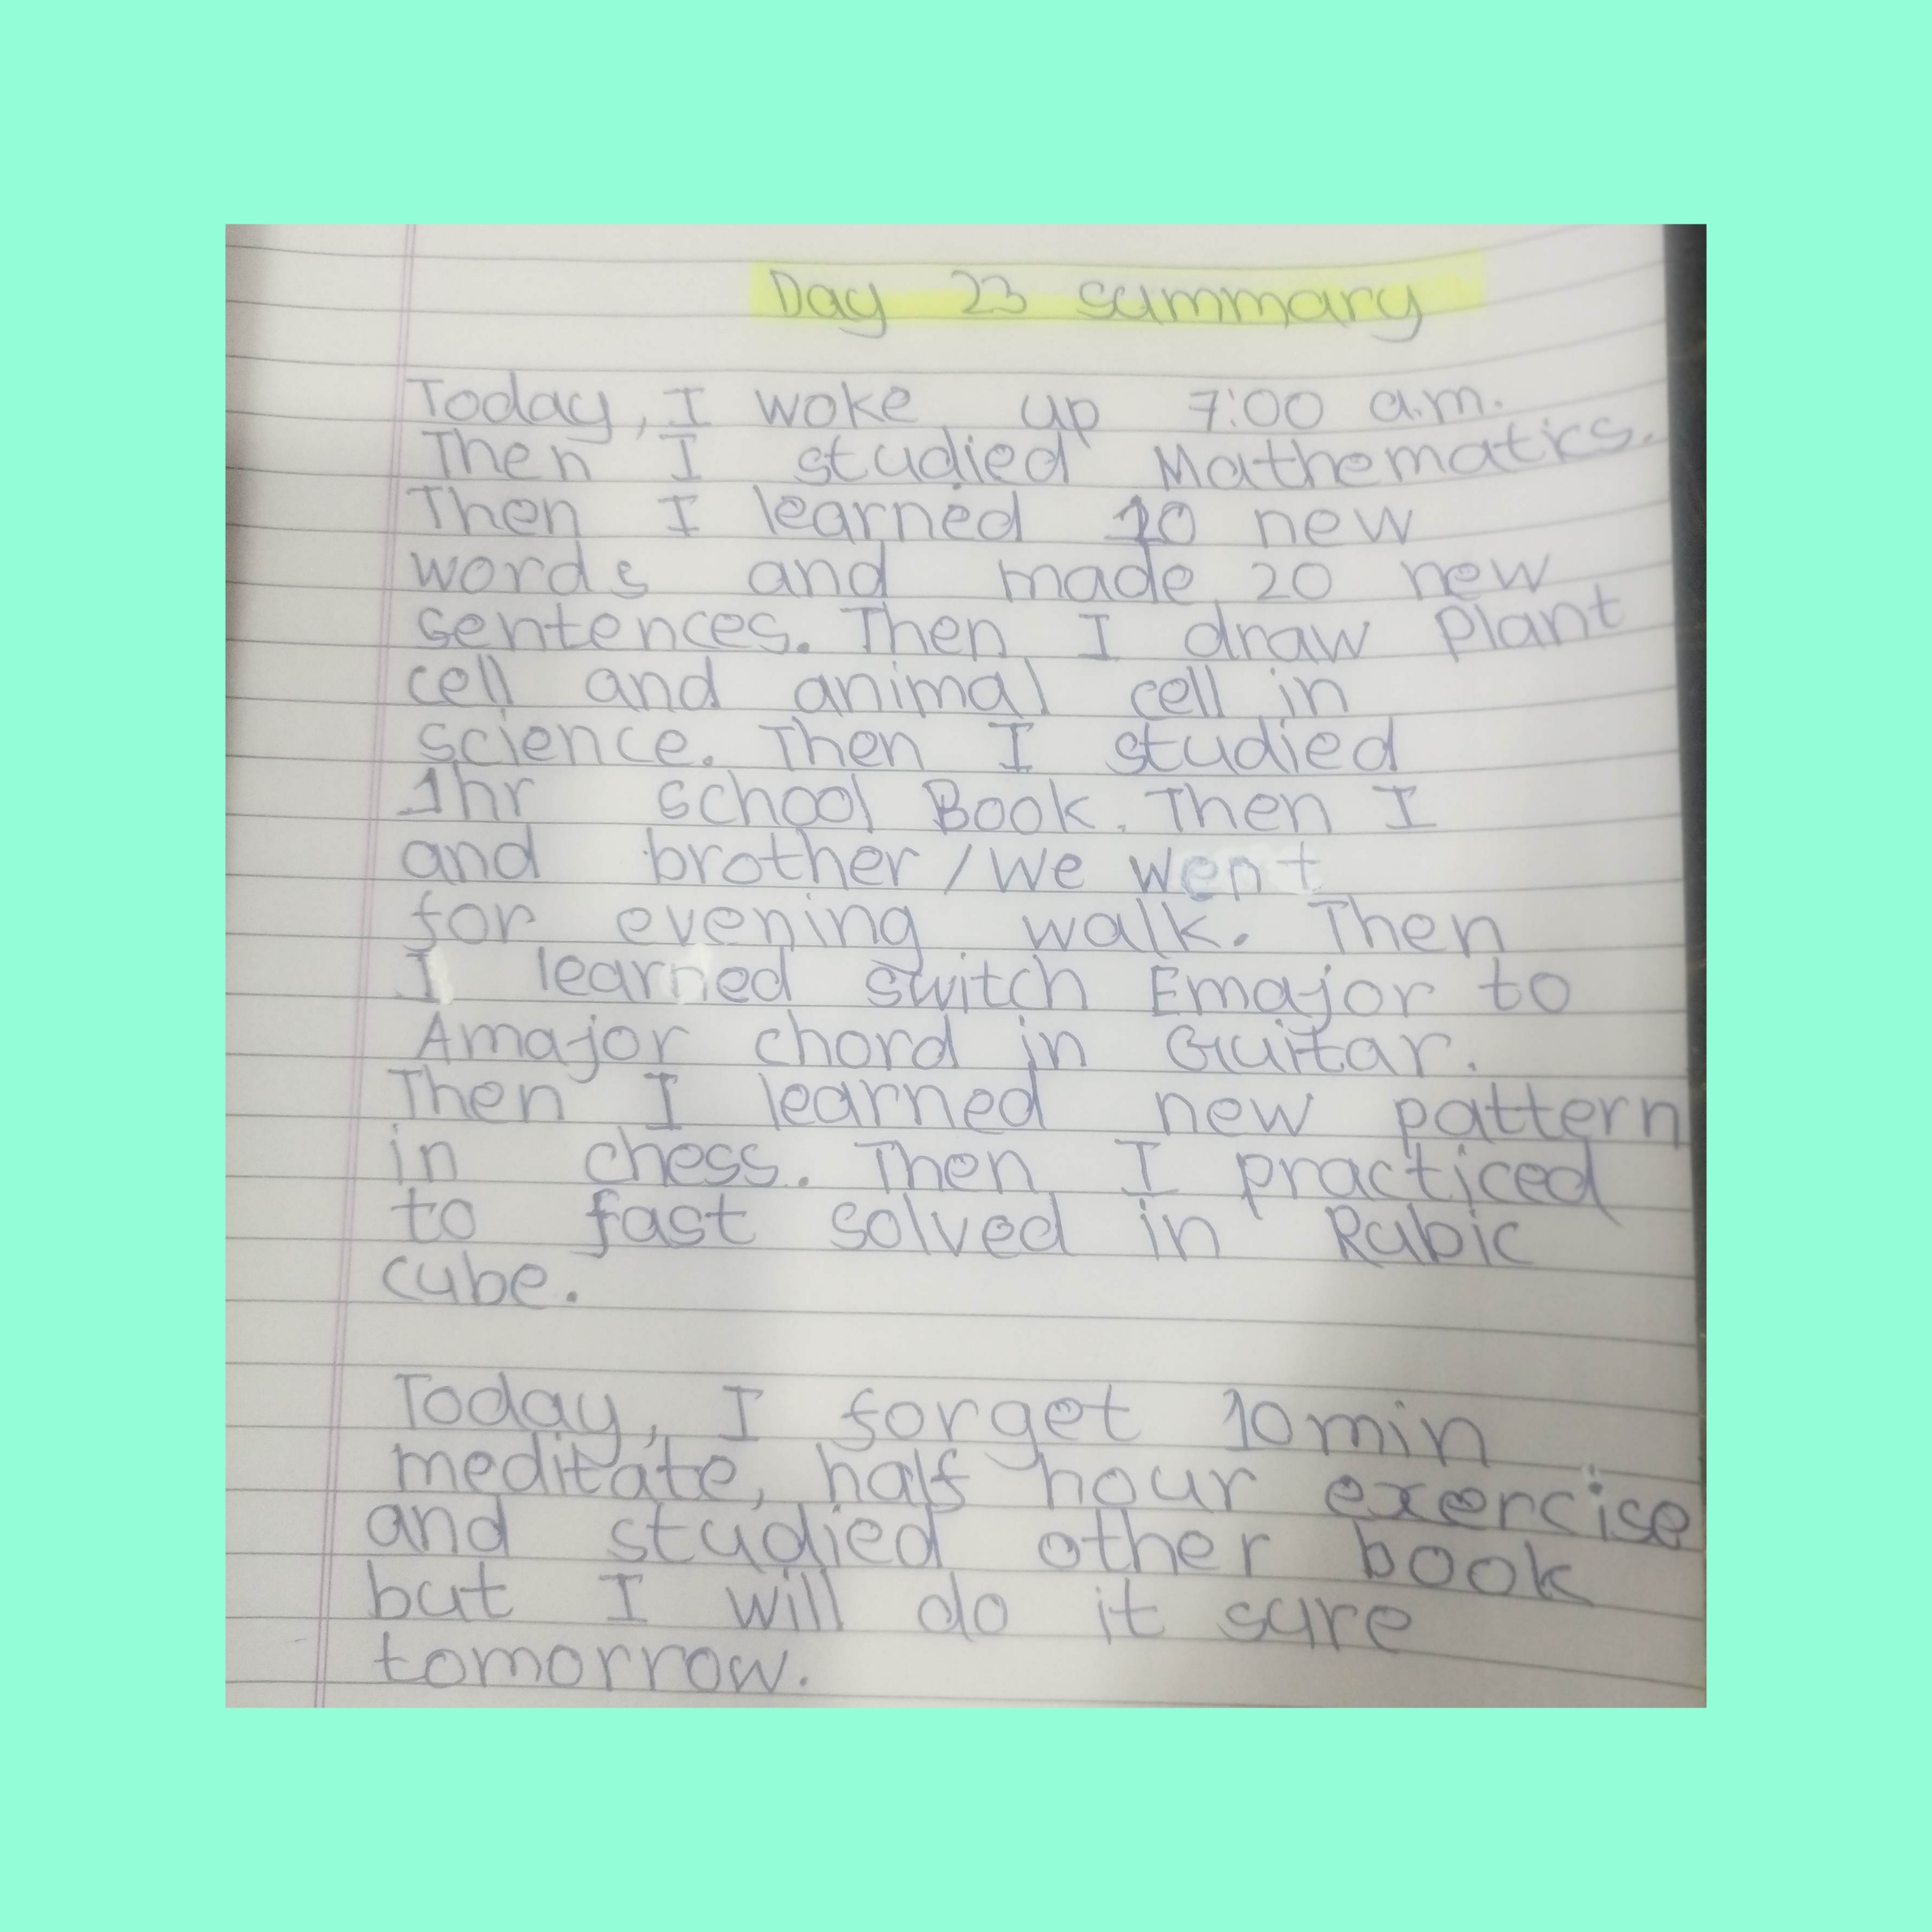 Day 23 summary
Today, I woke up 7:00 a.m.
Then I studied Mathematics.
Then I learned 10 new
words and made 20 new
sentences. Then I draw plant
cell and animal cell in
science. Then I studied
1hr school Book. Then I
and brother/We went
for evening walk. Then
I learned switch Emajor to
Amajor chord in Guitar.
Then I learned new pattern
in chess. Then I practiced
to fast solved in Rubic
cube.
Today, I forget 10min
meditate, half hour exercise
and studied other book
but I will do it sure
tomorrow.